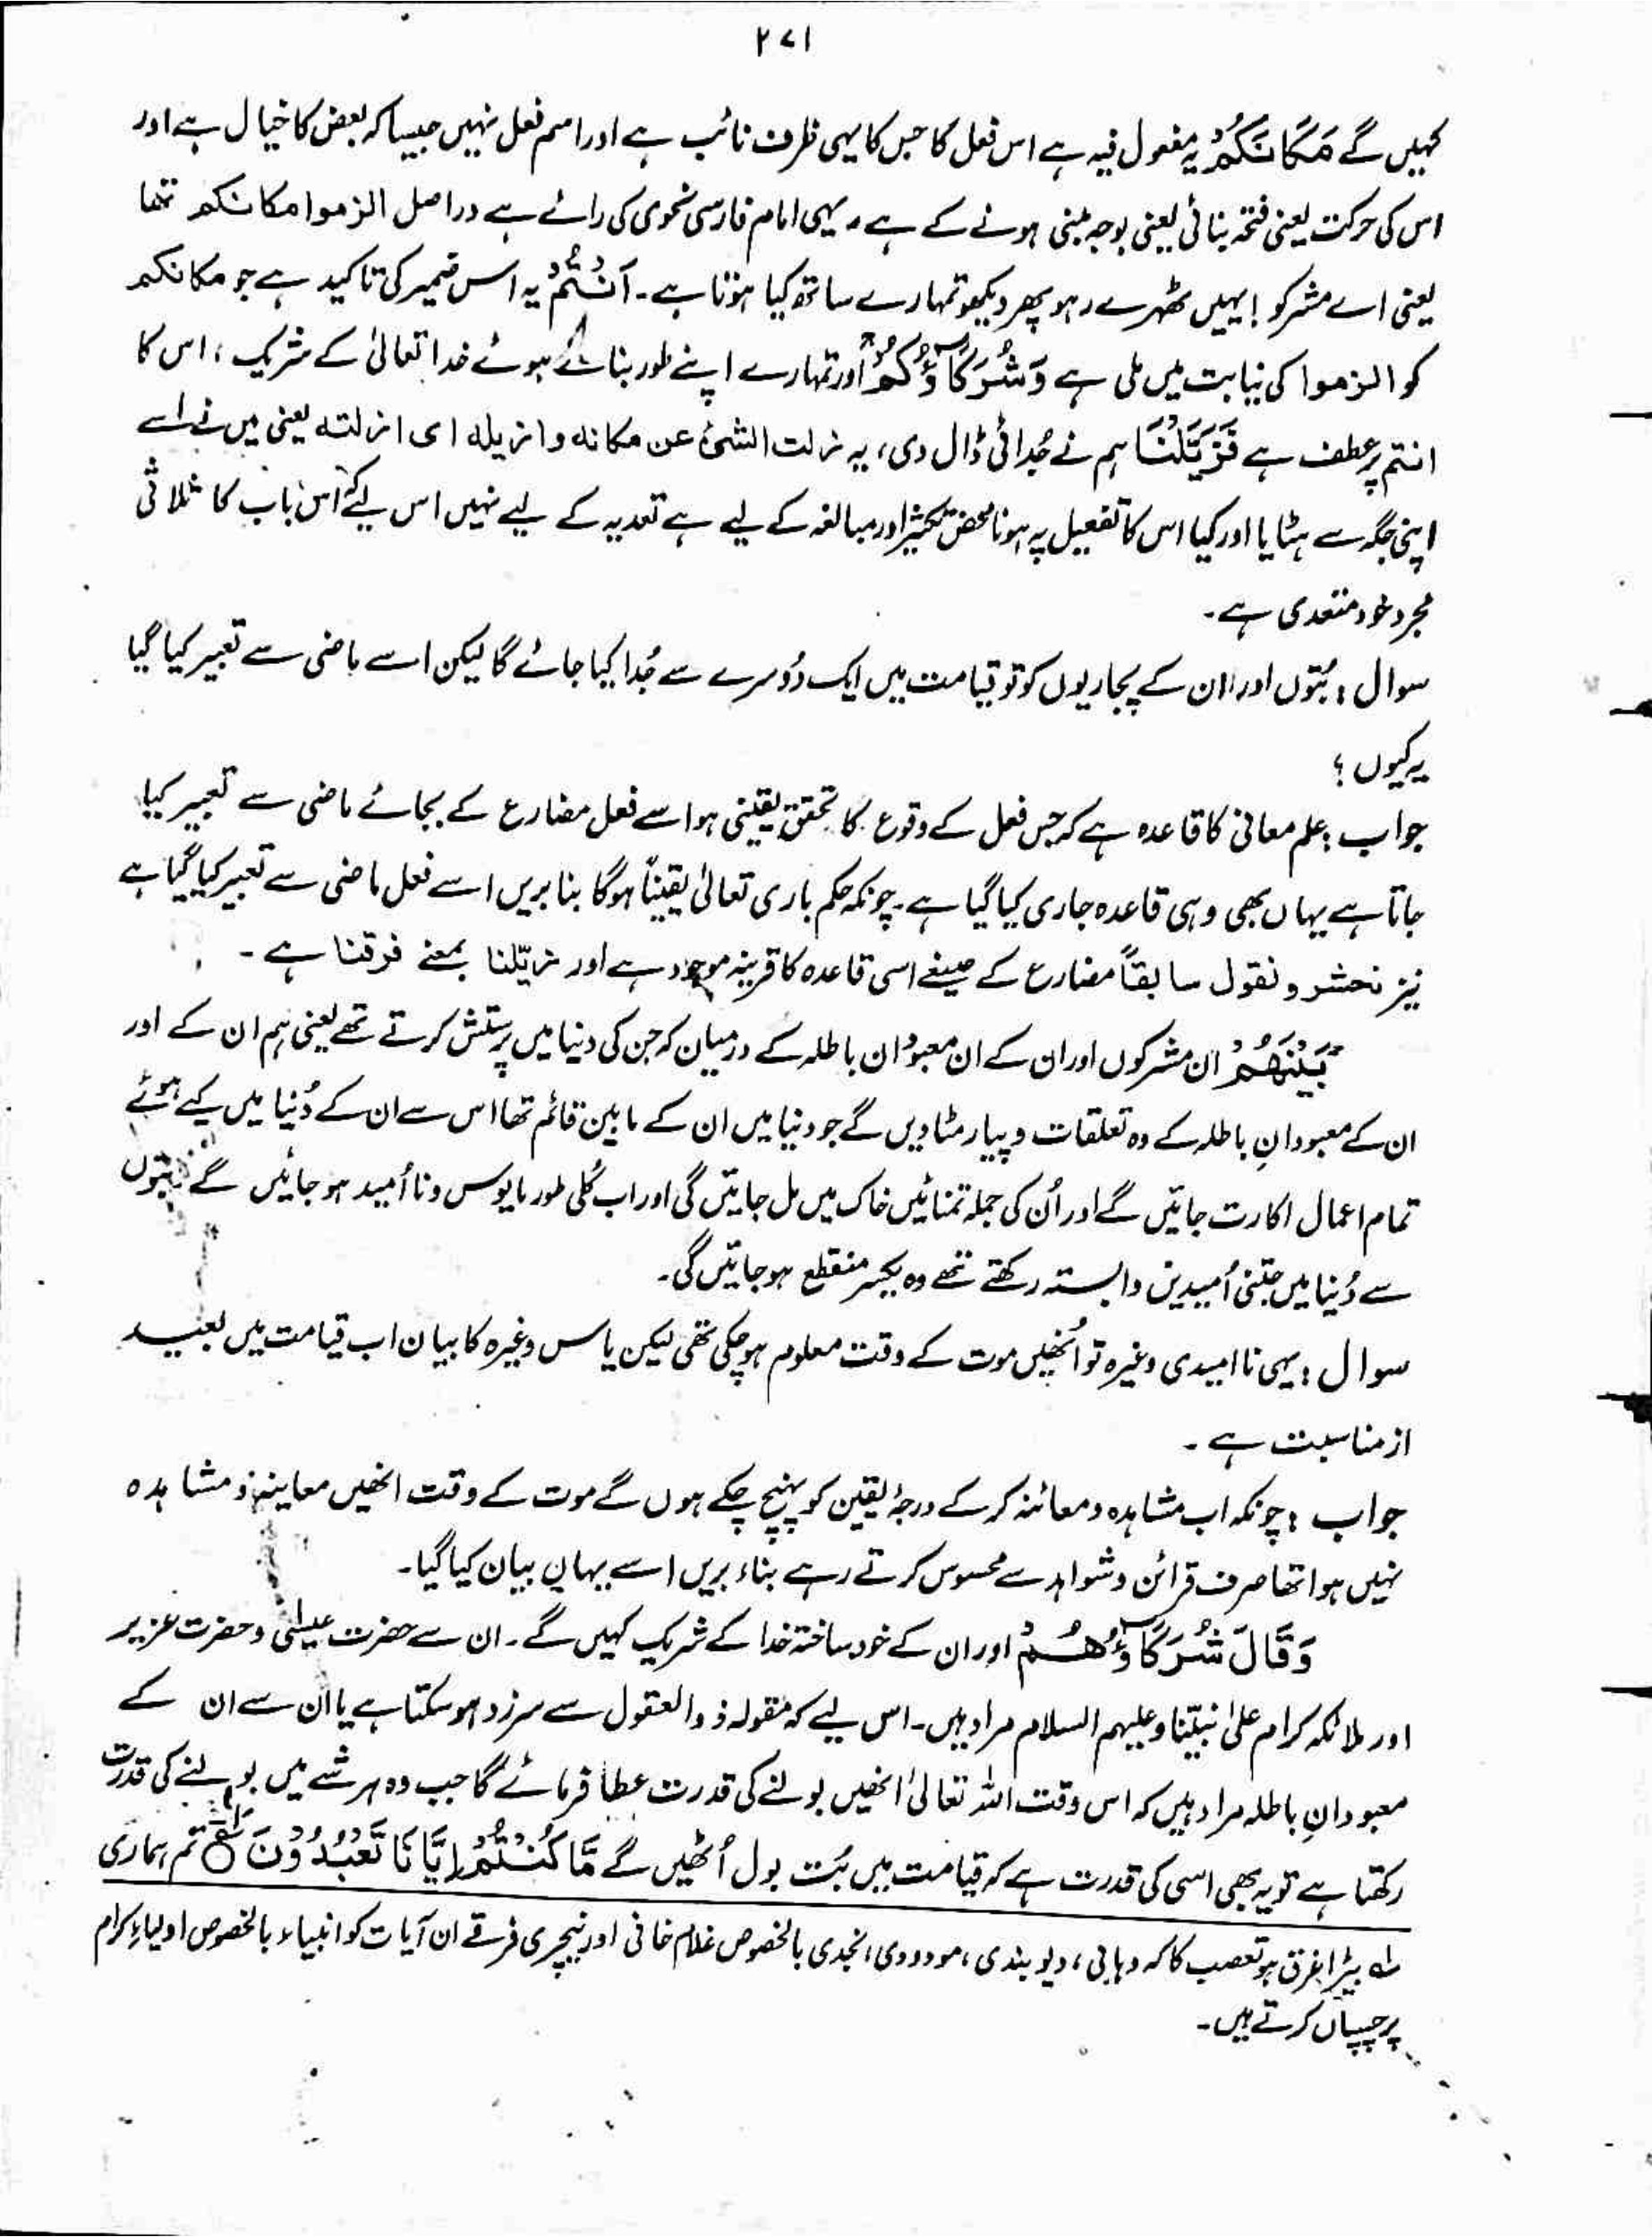 ۲۷۱
کہیں گے مَكَانَكُمْ یہ مفعول فیہ ہے اس فعل کا جس کا یہی ظرف نائب ہے اور اسم فعل نہیں جیسا کہ بعض کا خیال ہے اور
اس کی حرکت یعنی فتحہ بنائی یعنی بوجہ مبنی ہونے کے ہے۔ یہی امام فارسی نحوی کی رائے ہے دراصل الزموا مکانکم تھا
یعنی اے مشرکو! یہیں ٹھہرے رہو پھر دیکھو تمہارے ساتھ کیا ہوتا ہے۔ اَنْتُمْ یہ اس ضمیر کی تاکید ہے جو مکانکم
کو الزموا کی نیابت میں ملی ہے وَشُرَكَآؤُكُمْ اور تمہارے اپنے طور بنائے ہوئے خدا تعالیٰ کے شریک، اس کا
انتم پر عطف ہے فَزَيَّلْنَا ہم نے جُدائی ڈال دی، یہ زلت الشیٔ عن مکانہ و ازیلہ ای ازلتہ یعنی میں نے اسے
اپنی جگہ سے ہٹایا اور کیا اس کا تفعیل پہ ہونا محض تکثیر اور مبالغہ کے لیے ہے تعدیہ کے لیے نہیں اس لیے کہ اس باب کا ثلاثی
مجرد خود متعدی ہے۔
سوال: بُتوں اور ان کے پجاریوں کو تو قیامت میں ایک دُوسرے سے جُدا کیا جائے گا لیکن اسے ماضی سے تعبیر کیا گیا
یہ کیوں؟
جواب: علم معانی کا قاعدہ ہے کہ جس فعل کے وقوع کا تحقق یقینی ہو اسے فعل مضارع کے بجائے ماضی سے تعبیر کیا
جاتا ہے یہاں بھی وہی قاعدہ جاری کیا گیا ہے۔ چونکہ حکم باری تعالیٰ یقیناً ہوگا بنا بریں اسے فعل ماضی سے تعبیر کیا گیا ہے
نیز نحشر و نقول سابقاً مضارع کے صیغے اسی قاعدہ کا قرینہ موجود ہے اور زیّلنا بمعنے فرقنا ہے۔
بَيْنَهُمْ ان مشرکوں اور ان کے ان معبودان باطلہ کے درمیان کہ جن کی دنیا میں پرستش کرتے تھے یعنی ہم ان کے اور
ان کے معبودانِ باطلہ کے وہ تعلقات و پیار مٹا دیں گے جو دنیا میں ان کے مابین قائم تھا اس سے ان کے دُنیا میں کیے ہوئے
تمام اعمال اکارت جائیں گے اور اُن کی جملہ تمنائیں خاک میں مل جائیں گی اور اب کُلی طور مایوس و نا اُمید ہو جائیں گے بتوں
سے دُنیا میں جتنی اُمیدیں وابستہ رکھتے تھے وہ یکسر منقطع ہو جائیں گی۔
سوال: یہی نا امیدی وغیرہ تو اُنھیں موت کے وقت معلوم ہو چکی تھی لیکن یاس وغیرہ کا بیان اب قیامت میں بعید
از مناسبت ہے۔
جواب: چونکہ اب مشاہدہ و معائنہ کر کے درجۂ یقین کو پہنچ چکے ہوں گے موت کے وقت انھیں معاینہ و مشاہدہ
نہیں ہوا تھا صرف قرائن و شواہد سے محسوس کرتے رہے بناء بریں اسے یہاں بیان کیا گیا۔
وَقَالَ شُرَكَآؤُهُمْ اور ان کے خود ساختہ خدا کے شریک کہیں گے۔ ان سے حضرت عیسیٰ و حضرت عزیر
اور ملائکہ کرام علیٰ نبیّنا وعلیہم السلام مراد ہیں۔ اس لیے کہ مقولہ ذوالعقول سے سرزد ہو سکتا ہے یا ان سے ان کے
معبودانِ باطلہ مراد ہیں کہ اس وقت اللہ تعالیٰ انھیں بولنے کی قدرت عطا فرمائے گا جب وہ ہر شے میں بولنے کی قدرت
رکھتا ہے تو یہ بھی اسی کی قدرت ہے کہ قیامت میں بُت بول اُٹھیں گے مَّا كُنْتُمْ اِيَّانَا تَعْبُدُوْنَ ○ تم ہماری
لہ بیڑا غرق ہو تعصب کا کہ وہابی، دیوبندی، مودودی، نجدی بالخصوص غلام خانی اور نیچری فرقے ان آیات کو انبیاء بالخصوص اولیاء کرام
پر چسپاں کرتے ہیں۔